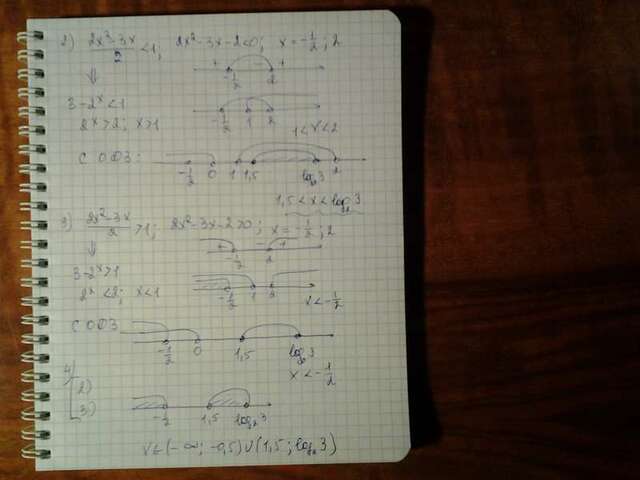 2) (2x²-3x)/2 <1, 2x²-3x-2<0; x=-1/2; 2
+ - +
-1/2 2
⇓
3-2ˣ<1
2ˣ>2; x>1
-1/2 1 2
1<x<2
С ОДЗ:
-1/2 0 1 1,5 log₂3 2
1,5<x<log₂3
3) (2x²-3x)/2 >1, 2x²-3x-2>0; x=-1/2; 2
+ - +
-1/2 2
⇓
3-2ˣ>1
2ˣ<2; x<1
-1/2 1 2
x<-1/2
С ОДЗ
-1/2 0 1,5 log₂3
x<-1/2
4)
2)
3)
-1/2 1,5 log₂3
x∈(-∞; -0,5)∪(1,5; log₂3)